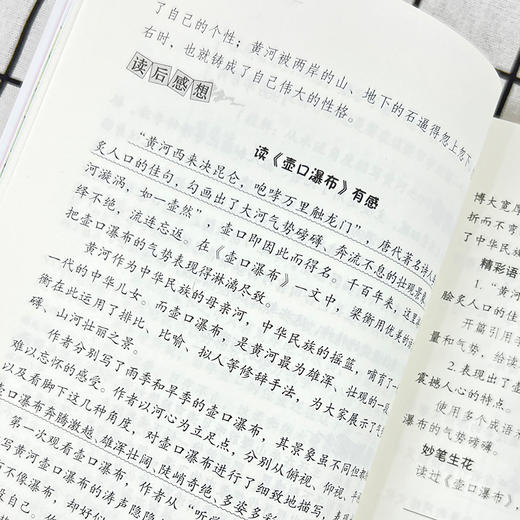 了自己的个性；黄河被两岸的山、地下的石逼得忽上忽下
右时，也就铸成了自己伟大的性格。
读后感想
读《壶口瀑布》有感
“黄河西来决昆仑，咆哮万里触龙门”，唐代著名诗人
炙人口的佳句，勾画出了大河气势磅礴、奔流不息的壮观景象
河漩涡，如一壶然”，壶口即因此而得名。千百年来，这里
绎不绝，流连忘返。在《壶口瀑布》一文中，梁衡用优美的
把壶口瀑布的气势表现得淋漓尽致。
黄河作为中华民族的母亲河，中华民族的摇篮，哺育了一
一代的中华儿女。而壶口瀑布，是黄河最为雄浑、壮观的一段
衡在此运用了排比、比喻、拟人等修辞手法，为大家展示了
礴、山河壮丽之景。
作者分别写了雨季和旱季的壶口瀑布，其景象虽不同但
难以忘怀的感受。作者以河心为立足点，分别从俯视、仰视、
以及看脚下这几种角度，对壶口瀑布进行了细致地描写，
壶口瀑布奔腾激越、雄浑壮阔、陡峭奇绝、多姿多彩
第一次观看壶口瀑布，作者从“听觉
写黄河壶口瀑布的涛声隐隐
而不像瀑布，却好似
自己。作
博大宽厚
折而不弯
了中华民
精彩语
1. “黄
脍炙人口的
开篇引用
量和气势，给读
2. 表现出了
震撼人心的特点。
使用多个成语
瀑布的气势磅礴。
妙笔生花
读过《壶口瀑布》，